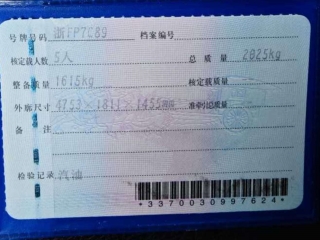 号牌号码 浙FP7C89 档案编号
核定载人数 5人 总质量 2025kg
整备质量 1615kg 核定载质量
外廓尺寸 4753×1811×1455mm 准牵引总质量
备注
检验记录 汽油
*3370030997624*